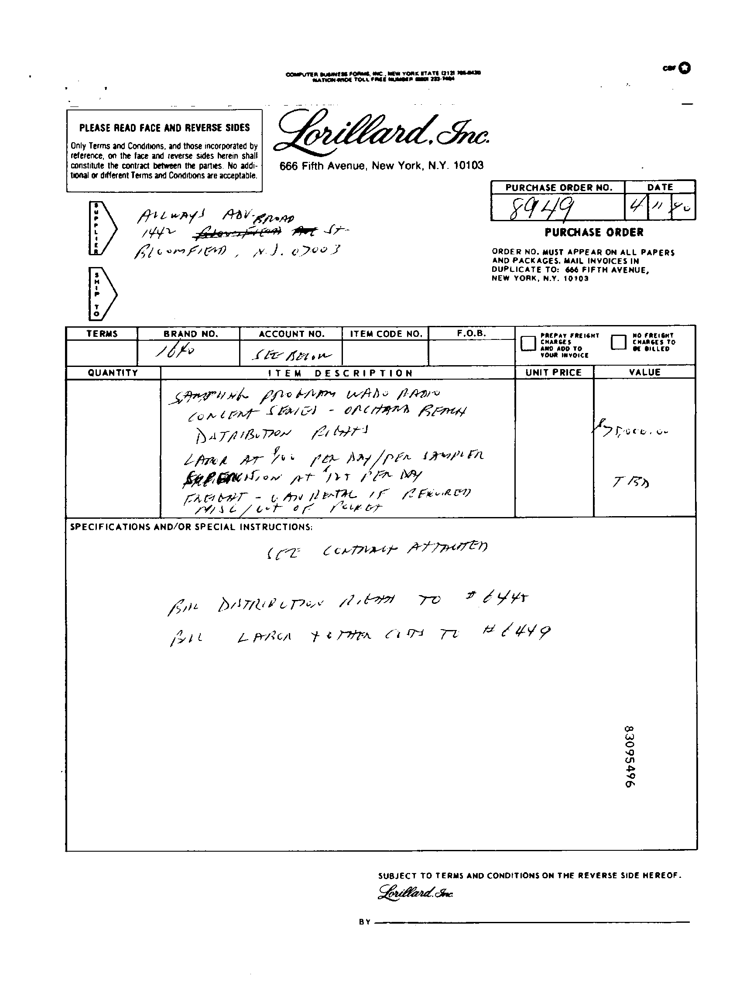 COMPUTER BUSINESS FORMS, INC., NEW YORK STATE (212)
NATION-WIDE TOLL FREE NUMBER
CBF
PLEASE READ FACE AND REVERSE SIDES
Only Terms and Conditions, and those incorporated by
reference, on the face and reverse sides herein shall
constitute the contract between the parties. No addi-
tional or different Terms and Conditions are acceptable.
Lorillard, Inc.
666 Fifth Avenue, New York, N.Y. 10103
PURCHASE ORDER NO. DATE
8949 4 11 80
SUPPLIER
ALLWAYS ADV.
1442 BROAD ST
BLOOMFIELD, N.J. 07003
PURCHASE ORDER
ORDER NO. MUST APPEAR ON ALL PAPERS
AND PACKAGES. MAIL INVOICES IN
DUPLICATE TO: 666 FIFTH AVENUE,
NEW YORK, N.Y. 10103
SHIP TO
TERMS BRAND NO. ACCOUNT NO. ITEM CODE NO. F.O.B.
1640 SEE BELOW
PREPAY FREIGHT
CHARGES
AND ADD TO
YOUR INVOICE
NO FREIGHT
CHARGES TO
BE BILLED
QUANTITY ITEM DESCRIPTION UNIT PRICE VALUE
SAMPLING PROGRAM WADO RADIO
CONCERT SERIES - ORCHARD BEACH
DISTRIBUTION RIGHTS
LABOR AT PER DAY/PER SAMPLER
AT $125 PER DAY
FREIGHT - VAN RENTAL IF REQUIRED TBD
MISC/OUT OF POCKET
SPECIFICATIONS AND/OR SPECIAL INSTRUCTIONS:
SEE CONTRACT ATTACHED
BILL DISTRIBUTION RIGHTS TO
BILL LABOR + OTHER COSTS TO #6449
83095496
SUBJECT TO TERMS AND CONDITIONS ON THE REVERSE SIDE HEREOF.
Lorillard, Inc.
BY